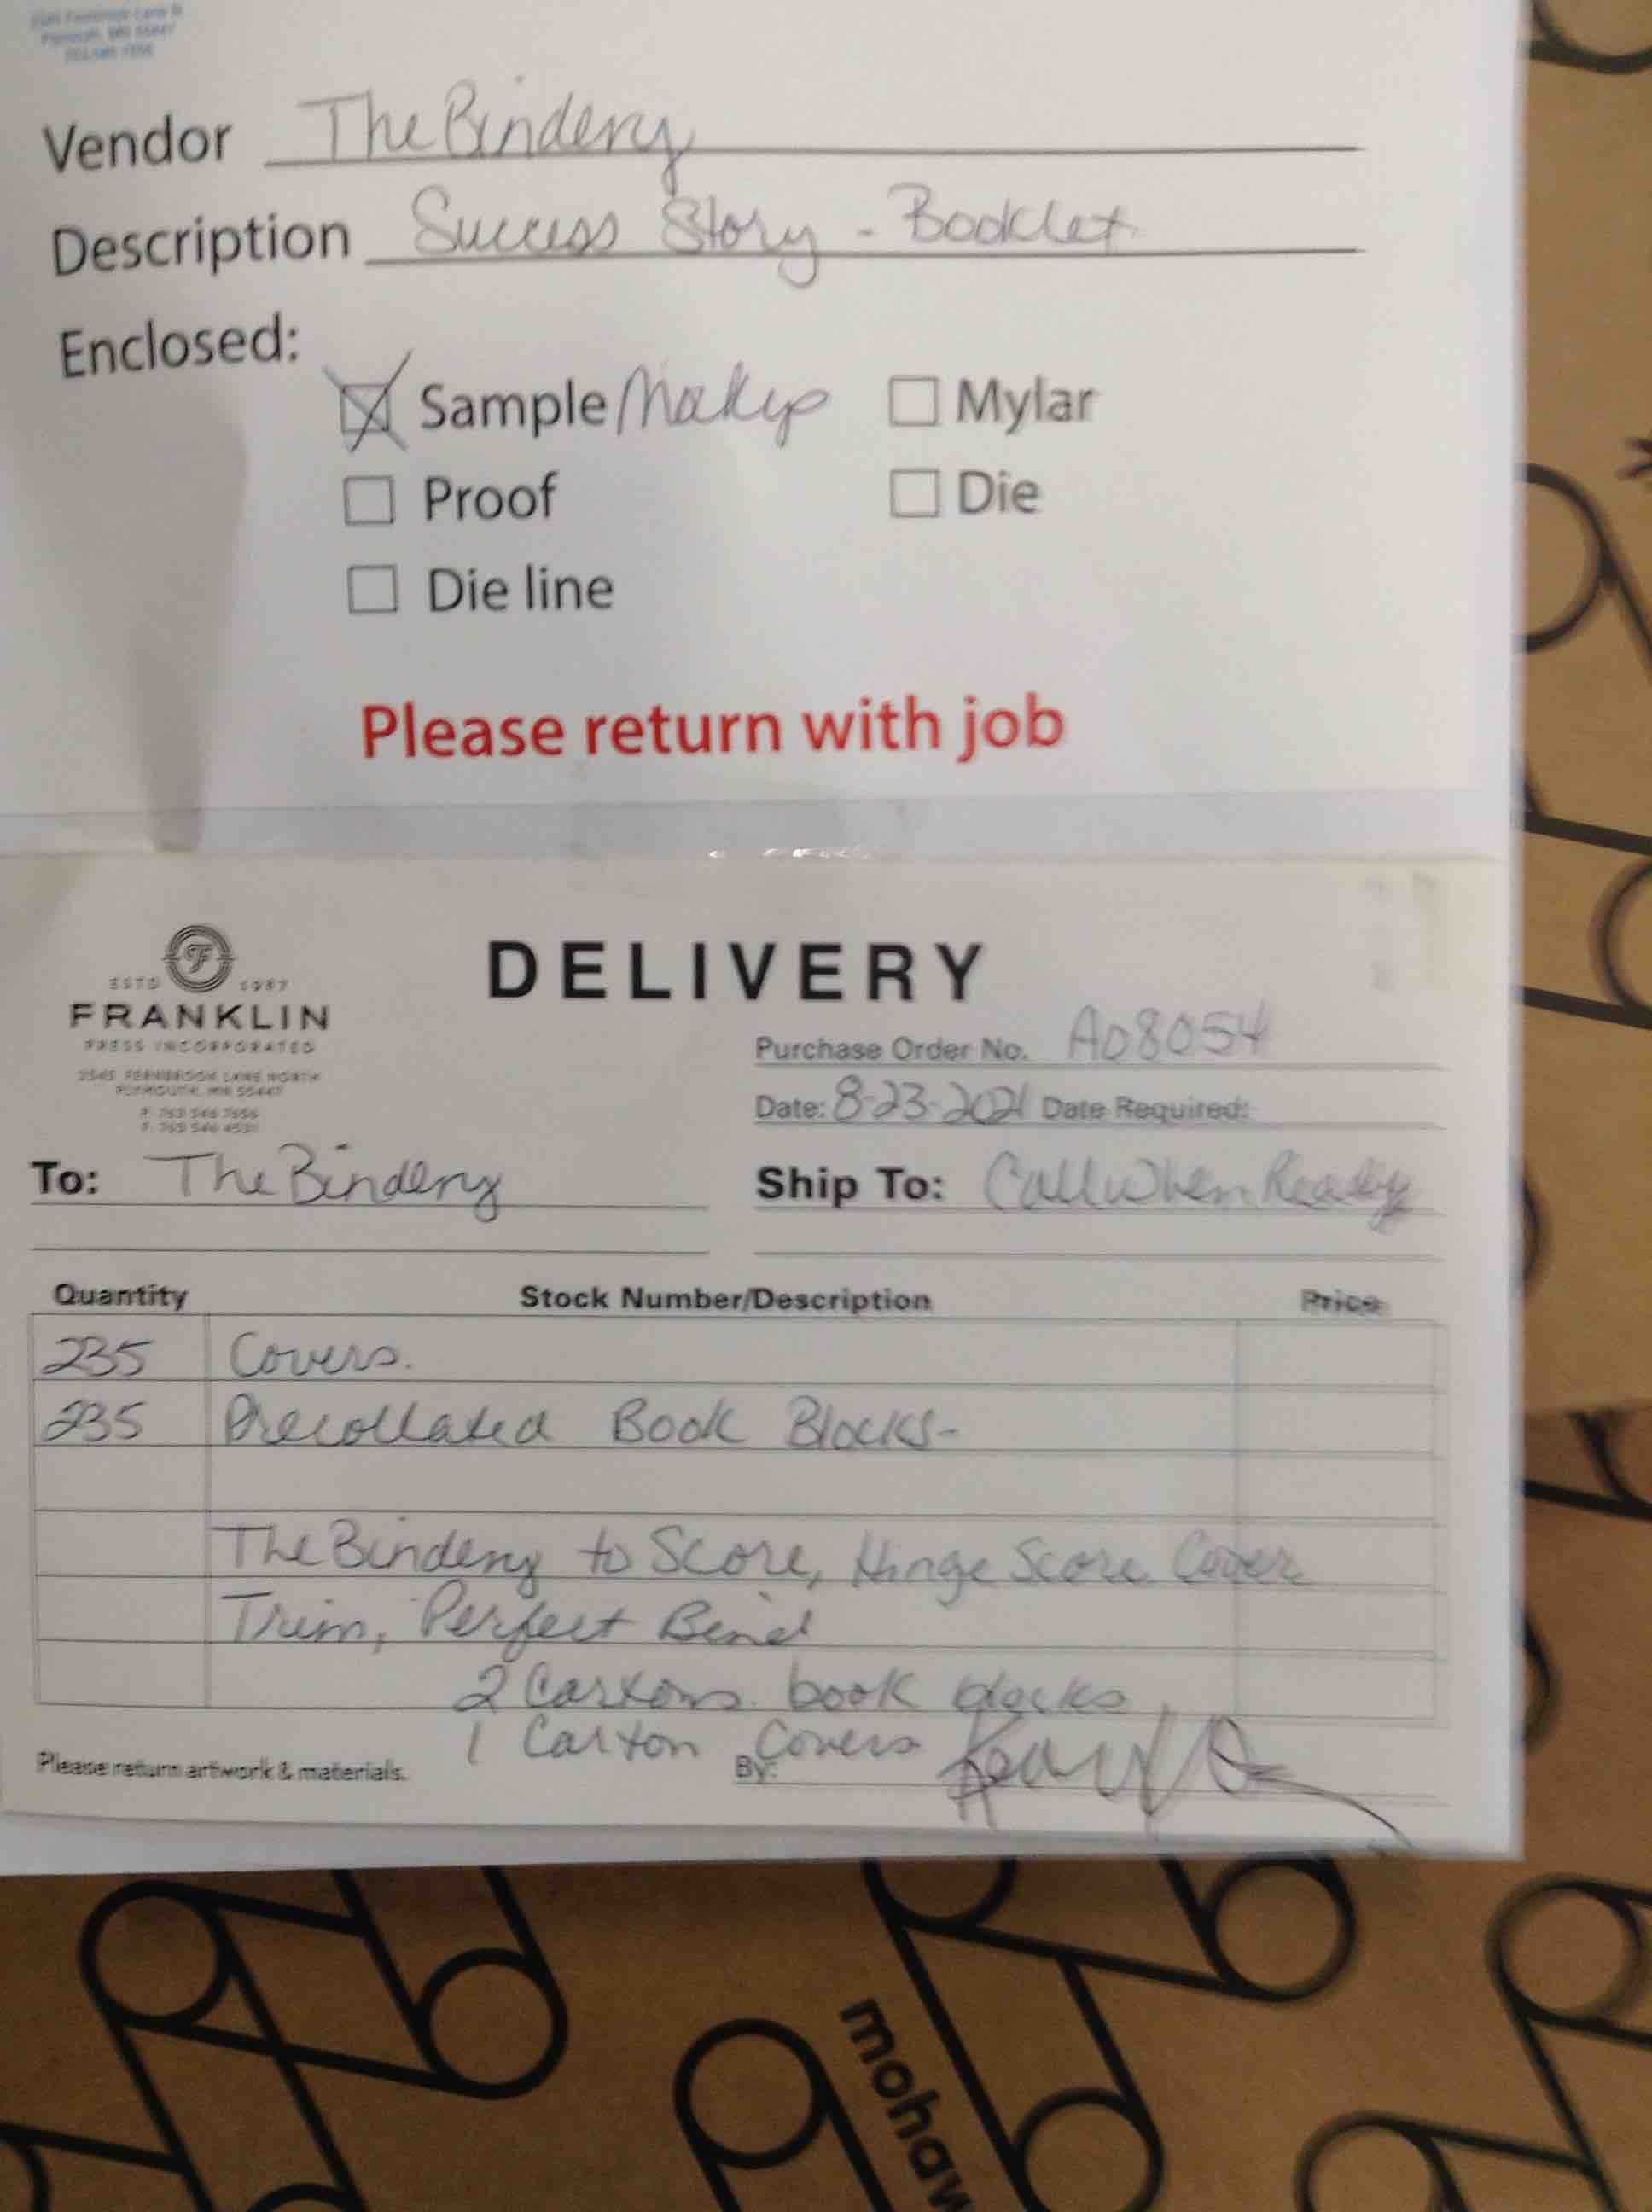 Plymouth, MN 55447
Vendor The Bindery
Description Success Story - Booklet
Enclosed:
Sample Mockup Mylar
Proof Die
Die line
Please return with job
ESTD 1987
FRANKLIN
PRESS INCORPORATED
2545 FERNBROOK LANE NORTH
PLYMOUTH, MN 55447
P. 763 546 7656
F. 763 546 4531
DELIVERY
Purchase Order No. A08054
Date: 8-23-2021 Date Required:
To: The Bindery
Ship To: Call When Ready
Quantity Stock Number/Description Price
235 Covers.
235 Precollated Book Blocks-
The Bindery to Score, Hinge Score Cover
Trim, Perfect Bind
2 Cartons book blocks
1 Carton Covers
Please return artwork & materials.
By:
mohaw